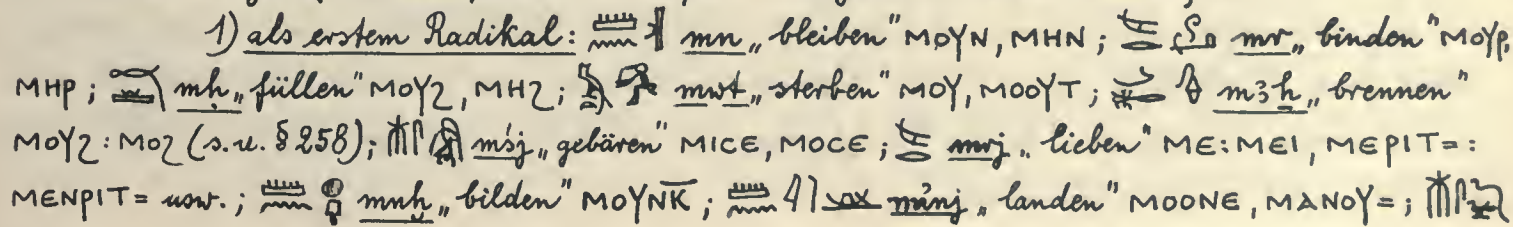 1) als erstem Radikal: mn „bleiben" ⲙⲟⲩⲛ, ⲙⲏⲛ; mr „binden" ⲙⲟⲩⲣ,
ⲙⲏⲣ; mḥ „füllen" ⲙⲟⲩϩ, ⲙⲏϩ; mwt „sterben" ⲙⲟⲩ, ⲙⲟⲟⲩⲧ; mꜣḫ „brennen"
ⲙⲟⲩϩ : ⲙⲟϩ (s. u. § 258); mśj „gebären" ⲙⲓⲥⲉ, ⲙⲟⲥⲉ; mrj „lieben" ⲙⲉ : ⲙⲉⲓ, ⲙⲉⲣⲓⲧ= :
ⲙⲉⲛⲣⲓⲧ= usw.; mnḫ „bilden" ⲙⲟⲩⲛⲕ̄; mỉnj „landen" ⲙⲟⲟⲛⲉ, ⲙⲁⲛⲟⲩ=;